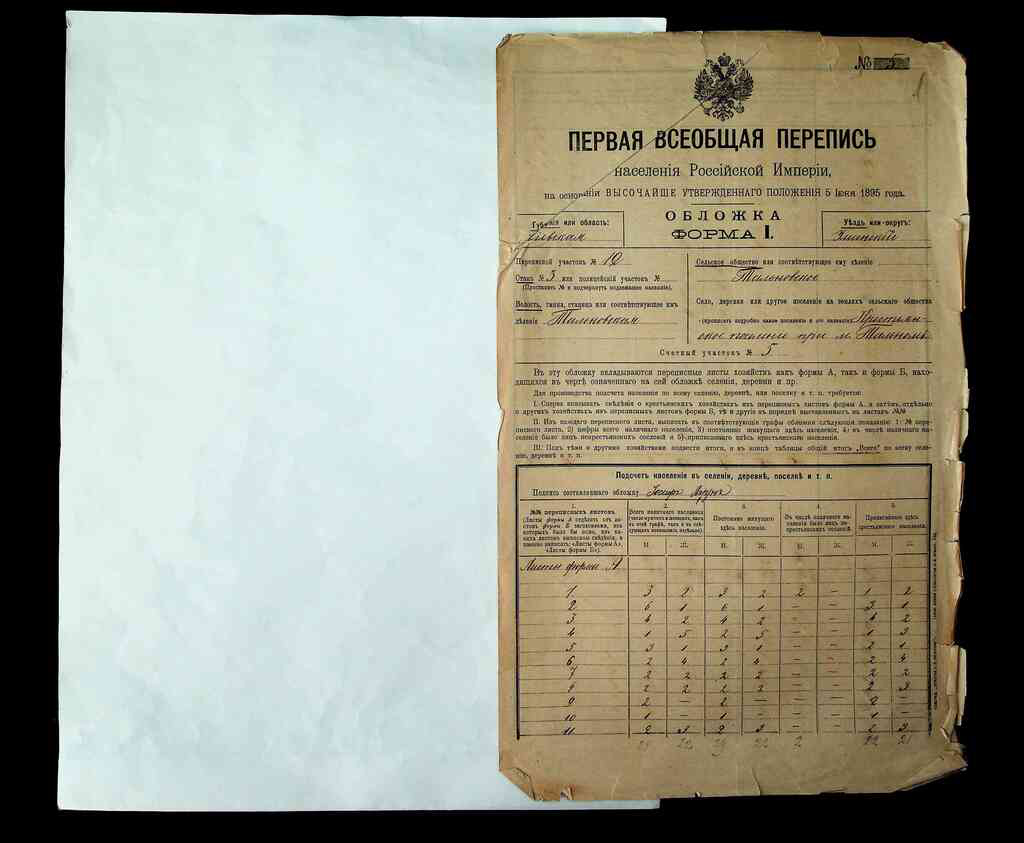 № 5
ПЕРВАЯ ВСЕОБЩАЯ ПЕРЕПИСЬ
населенія Россійской Имперіи,
на основаніи ВЫСОЧАЙШЕ УТВЕРЖДЕННАГО ПОЛОЖЕНІЯ 5 Іюня 1895 года.
ОБЛОЖКА
ФОРМА I.
Губернія или область:
Уѣздъ или округъ:
Переписной участокъ № 10
Станъ № 3 или полицейскій участокъ №
(Проставить № и подчеркнуть подлежащее названіе).
Волость, гмина, станица или соотвѣтствующее имъ
дѣленіе
Сельское общество или соотвѣтствующее ему дѣленіе
Село, деревня или другое поселеніе на земляхъ сельскаго общества
(прописать подробно какое поселеніе и его названіе)
Счетный участокъ № 5
Въ эту обложку вкладываются переписные листы хозяйствъ какъ формы А, такъ и формы Б, нахо-
дящихся въ чертѣ означеннаго на сей обложкѣ селенія, деревни и пр.
Для производства подсчета населенія по всему селенію, деревнѣ, или поселку и т. п. требуется:
I. Сперва вписывать свѣдѣнія о крестьянскихъ хозяйствахъ изъ переписныхъ листовъ формы А, а затѣмъ, отдѣльно
о другихъ хозяйствахъ изъ переписныхъ листовъ формы Б, тѣ и другіе въ порядкѣ выставленныхъ на листахъ №№
II. Изъ каждаго переписного листа, выписать въ соотвѣтствующія графы обложки слѣдующія показанія: 1) № пере-
писного листа, 2) цифры всего наличнаго населенія, 3) постоянно живущаго здѣсь населенія, 4) въ числѣ наличнаго на-
селенія было лицъ некрестьянскихъ сословій и 5) приписаннаго здѣсь крестьянскаго населенія.
III. Подъ тѣми и другими хозяйствами подвести итоги, а въ концѣ таблицы общій итогъ „Всего" по всему селе-
нію, деревнѣ и т. п.
Подсчетъ населенія въ селеніи, деревнѣ, поселкѣ и т. п.
Подпись составлявшаго обложку
1. 2. 3. 4. 5.
№№ переписныхъ листовъ
Постоянно живущаго здѣсь населенія.
Въ числѣ наличнаго населенія было лицъ некрестьянскихъ сословій.
Приписаннаго здѣсь крестьянскаго населенія.
М. Ж. М. Ж. М. Ж. М. Ж.
Листы формы А.
1 3 2 3 2 2 – 1 2
2 6 1 6 1 – – 3 1
3 4 2 4 2 – – 4 2
4 1 5 2 5 – – 1 3
5 3 1 3 1 – – 2 1
6 2 4 2 4 – – 2 4
7 2 2 2 2 – – 2 2
8 2 2 2 2 – – 2 3
9 2 – 2 – – – 2 –
10 1 – 1 – – – 1 –
11 2 3 2 3 – – 2 3